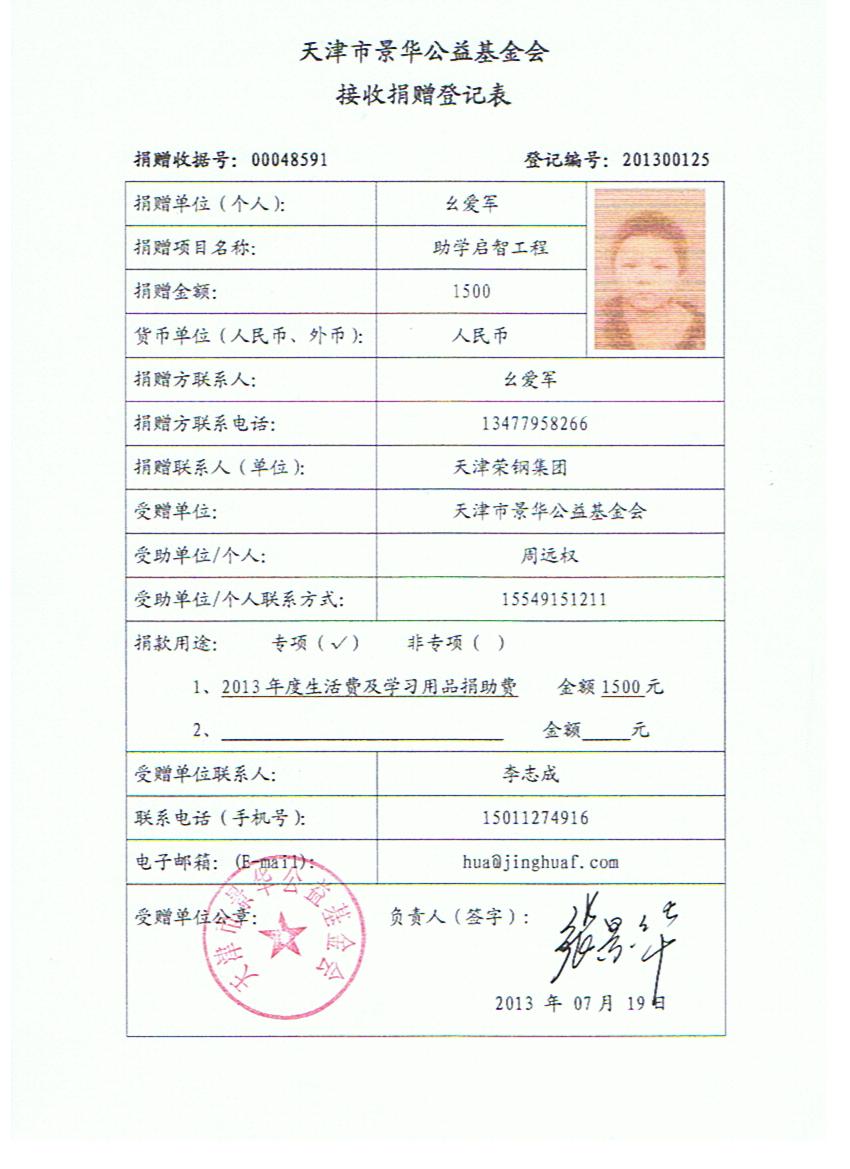 天津市景华公益基金会
接收捐赠登记表
捐赠收据号: 00048591 登记编号: 201300125
捐赠单位(个人): 幺爱军
捐赠项目名称: 助学启智工程
捐赠金额: 1500
货币单位(人民币、外币): 人民币
捐赠方联系人: 幺爱军
捐赠方联系电话: 13477958266
捐赠联系人(单位): 天津荣钢集团
受赠单位: 天津市景华公益基金会
受助单位/个人: 周远权
受助单位/个人联系方式: 15549151211
捐款用途: 专项(√) 非专项( )
1、2013年度生活费及学习用品捐助费 金额1500元
2、 金额 元
受赠单位联系人: 李志成
联系电话(手机号): 15011274916
电子邮箱: (E-mail): hua@jinghuaf.com
受赠单位公章: 负责人(签字): 张景华
天津市景华公益基金会
2013 年 07月 19日